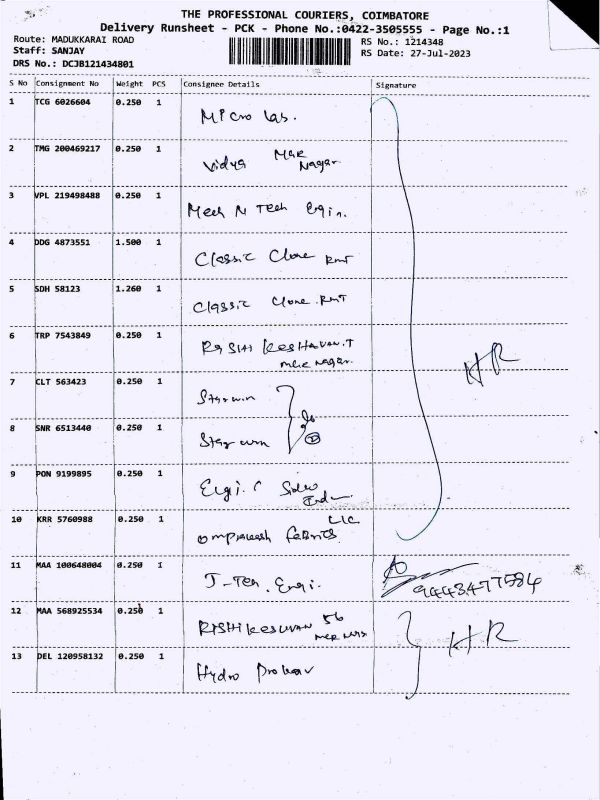 THE PROFESSIONAL COURIERS, COIMBATORE
Delivery Runsheet - PCK - Phone No.:0422-3505555 - Page No.:1
Route: MADUKKARAI ROAD
RS No.: 1214348
Staff: SANJAY
RS Date: 27-Jul-2023
DRS No.: DCJB121434801
S No Consignment No Weight PCS Consignee Details Signature
1 TCG 6026604 0.250 1 Micro Las.
2 TMG 200469217 0.250 1 Vidya
Nagar
3 VPL 219498488 0.250 1 Mech N Tech Engin.
4 DDG 4873551 1.500 1 Classic Clone RMT
5 SDH 58123 1.260 1 Classic Clone.RMT
6 TRP 7543849 0.250 1 RASHI KESHAVAN.T
Nagar.
HR
7 CLT 563423 0.250 1 Starwin
8 SNR 6513440 0.250 1 Starwin
9 PON 9199895 0.250 1 Engi.
10 KRR 5760988 0.250 1 Omprakash Fabrics LLC
11 MAA 100648004 0.250 1 J-Tech. Engi. 9443477584
12 MAA 568925534 0.250 1 RISHIKESHVAN 56
HR
13 DEL 120958132 0.250 1 Hydro